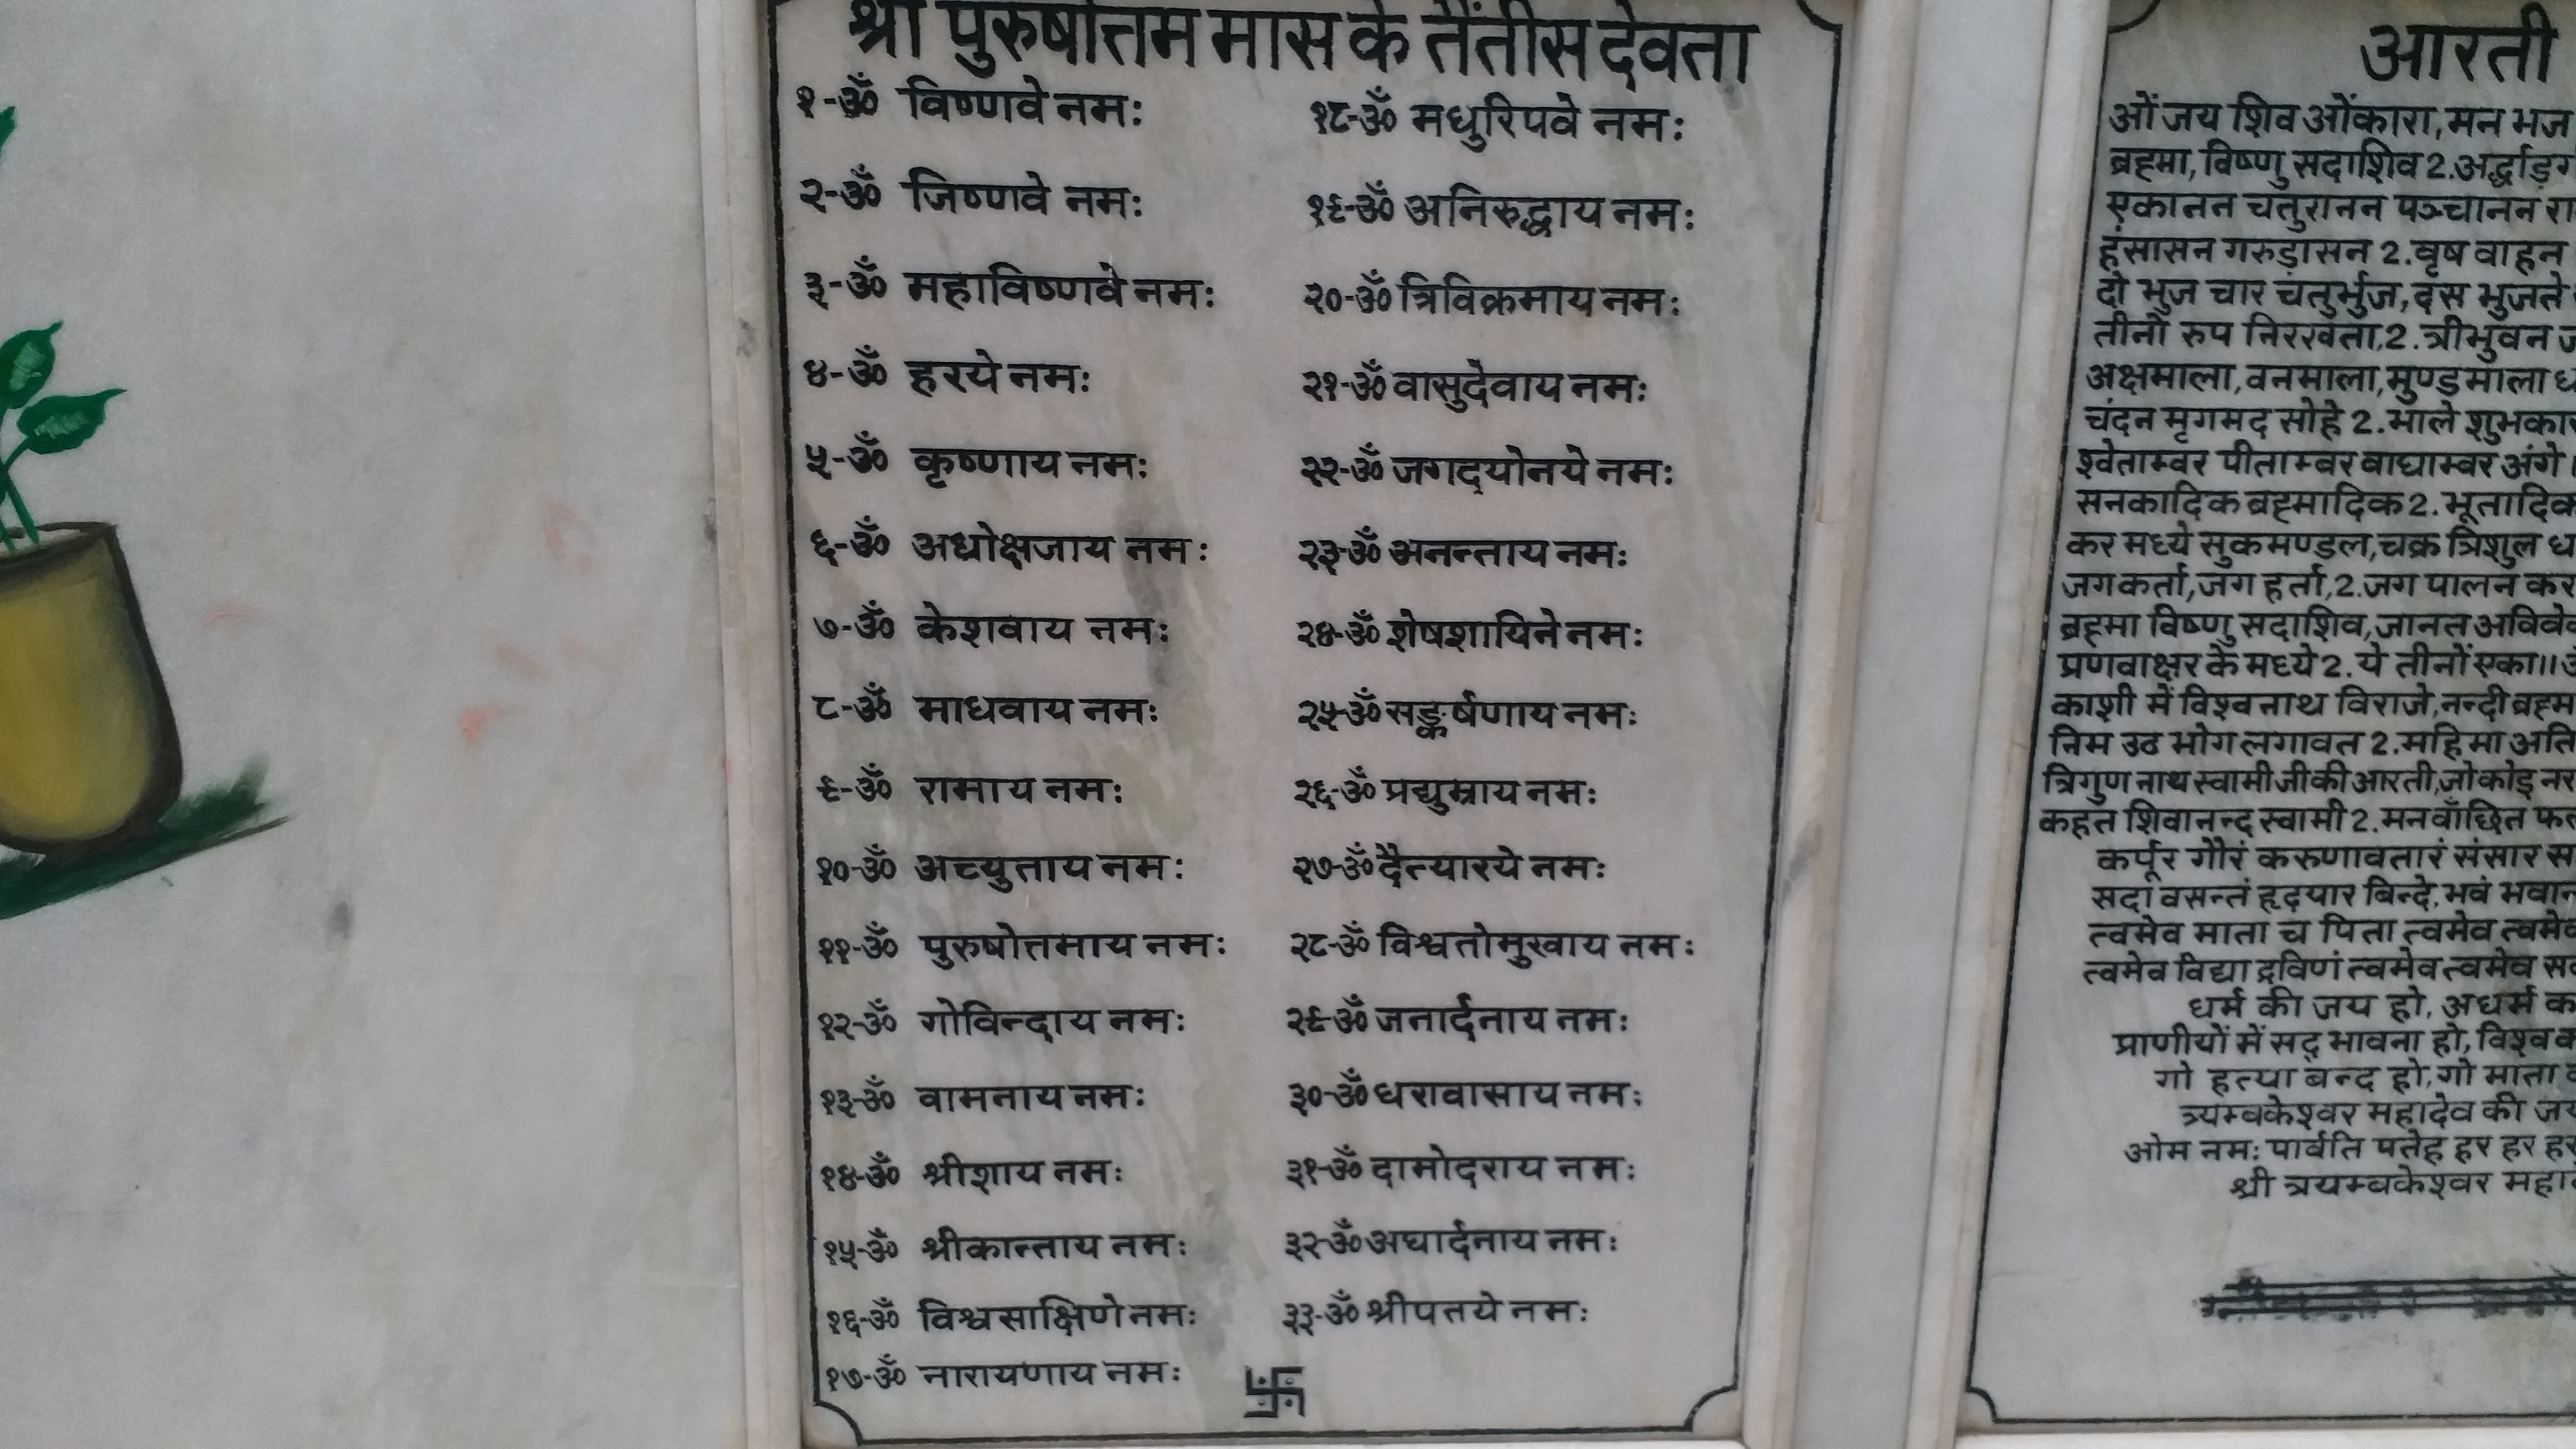 श्री पुरुषोत्तम मास के तेंतीस देवता
१-ॐ विष्णवे नमः
२-ॐ जिष्णवे नमः
३-ॐ महाविष्णवे नमः
४-ॐ हरये नमः
५-ॐ कृष्णाय नमः
६-ॐ अधोक्षजाय नमः
७-ॐ केशवाय नमः
८-ॐ माधवाय नमः
९-ॐ रामाय नमः
१०-ॐ अच्युताय नमः
११-ॐ पुरुषोत्तमाय नमः
१२-ॐ गोविन्दाय नमः
१३-ॐ वामनाय नमः
१४-ॐ श्रीशाय नमः
१५-ॐ श्रीकान्ताय नमः
१६-ॐ विश्वसाक्षिणे नमः
१७-ॐ नारायणाय नमः
१८-ॐ मधुरिपवे नमः
१९-ॐ अनिरुद्धाय नमः
२०-ॐ त्रिविक्रमाय नमः
२१-ॐ वासुदेवाय नमः
२२-ॐ जगद्योनये नमः
२३-ॐ अनन्ताय नमः
२४-ॐ शेषशायिने नमः
२५-ॐ सङ्कर्षणाय नमः
२६-ॐ प्रद्युम्नाय नमः
२७-ॐ दैत्यारये नमः
२८-ॐ विश्वतोमुखाय नमः
२९-ॐ जनार्दनाय नमः
३०-ॐ धरावासाय नमः
३१-ॐ दामोदराय नमः
३२-ॐ अघार्दनाय नमः
३३-ॐ श्रीपतये नमः
आरती
ओं जय शिव ओंकारा, मन भज
ब्रह्मा, विष्णु सदाशिव 2.
एकानन चतुरानन पञ्चानन
हंसासन गरुडासन 2. वृष वाहन
दो भुज चार चतुर्भुज, दस भुजते
तीनो रुप निरखता, 2. त्रीभुवन
अक्षमाला, वनमाला, मुण्डमाला
चंदन मृगमद सोहे 2. भाले
श्वेताम्बर पीताम्बर वाघाम्बर अंगे।
सनकादिक ब्रह्मादिक 2. भूतादिक
कर मध्ये सुकमण्डल, चक्र त्रिशुल
जगकर्ता, जग हर्ता, 2. जग पालन
ब्रह्मा विष्णु सदाशिव, जानत
प्रणवाक्षर के मध्ये 2. ये तीनों एका॥
काशी में विश्वनाथ विराजे, नन्दी
निम उठ भोग लगावत 2. महिमा अति
त्रिगुण नाथ स्वामीजी की आरती, जो कोइ नर
कहत शिवानन्द स्वामी 2. मनवाँछित
कर्पूर गौरं करुणावतारं संसार
सदा वसन्तं हृदयार बिन्दे, भवं
त्वमेव माता च पिता त्वमेव
त्वमेव विद्या द्रविणं त्वमेव त्वमेव
धर्म की जय हो, अधर्म
प्राणीयों में सद् भावना हो,
गो हत्या बन्द हो, गो माता
त्र्यम्बकेश्वर महादेव की
ओम नमः पार्वति पतेह हर हर
श्री त्रयम्बकेश्वर